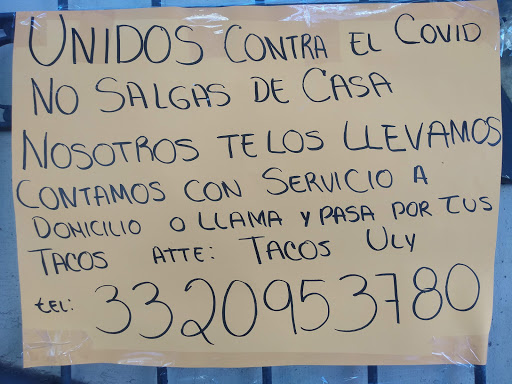 UNIDOS CONTRA EL COVID
NO SALGAS DE CASA
NOSOTROS TE LOS LLEVAMOS
CONTAMOS CON SERVICIO A
DOMICILIO O LLAMA Y PASA POR TUS
TACOS ATTE: TACOS ULY
tEL: 3320953780